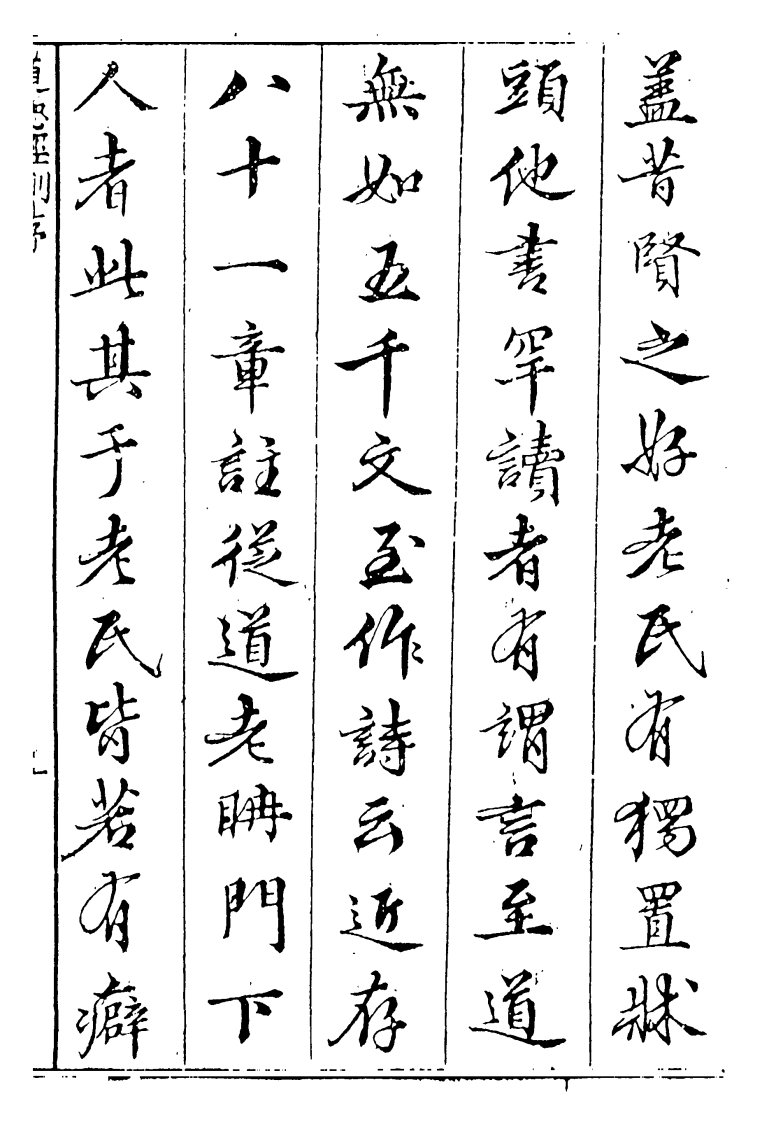 蓋昔賢之好老氏有獨置牀
頭他書罕讀者有謂言至道
無如五千文至作詩云近存
八十一章註從道老聃門下
人者此其于老氏皆若有癖